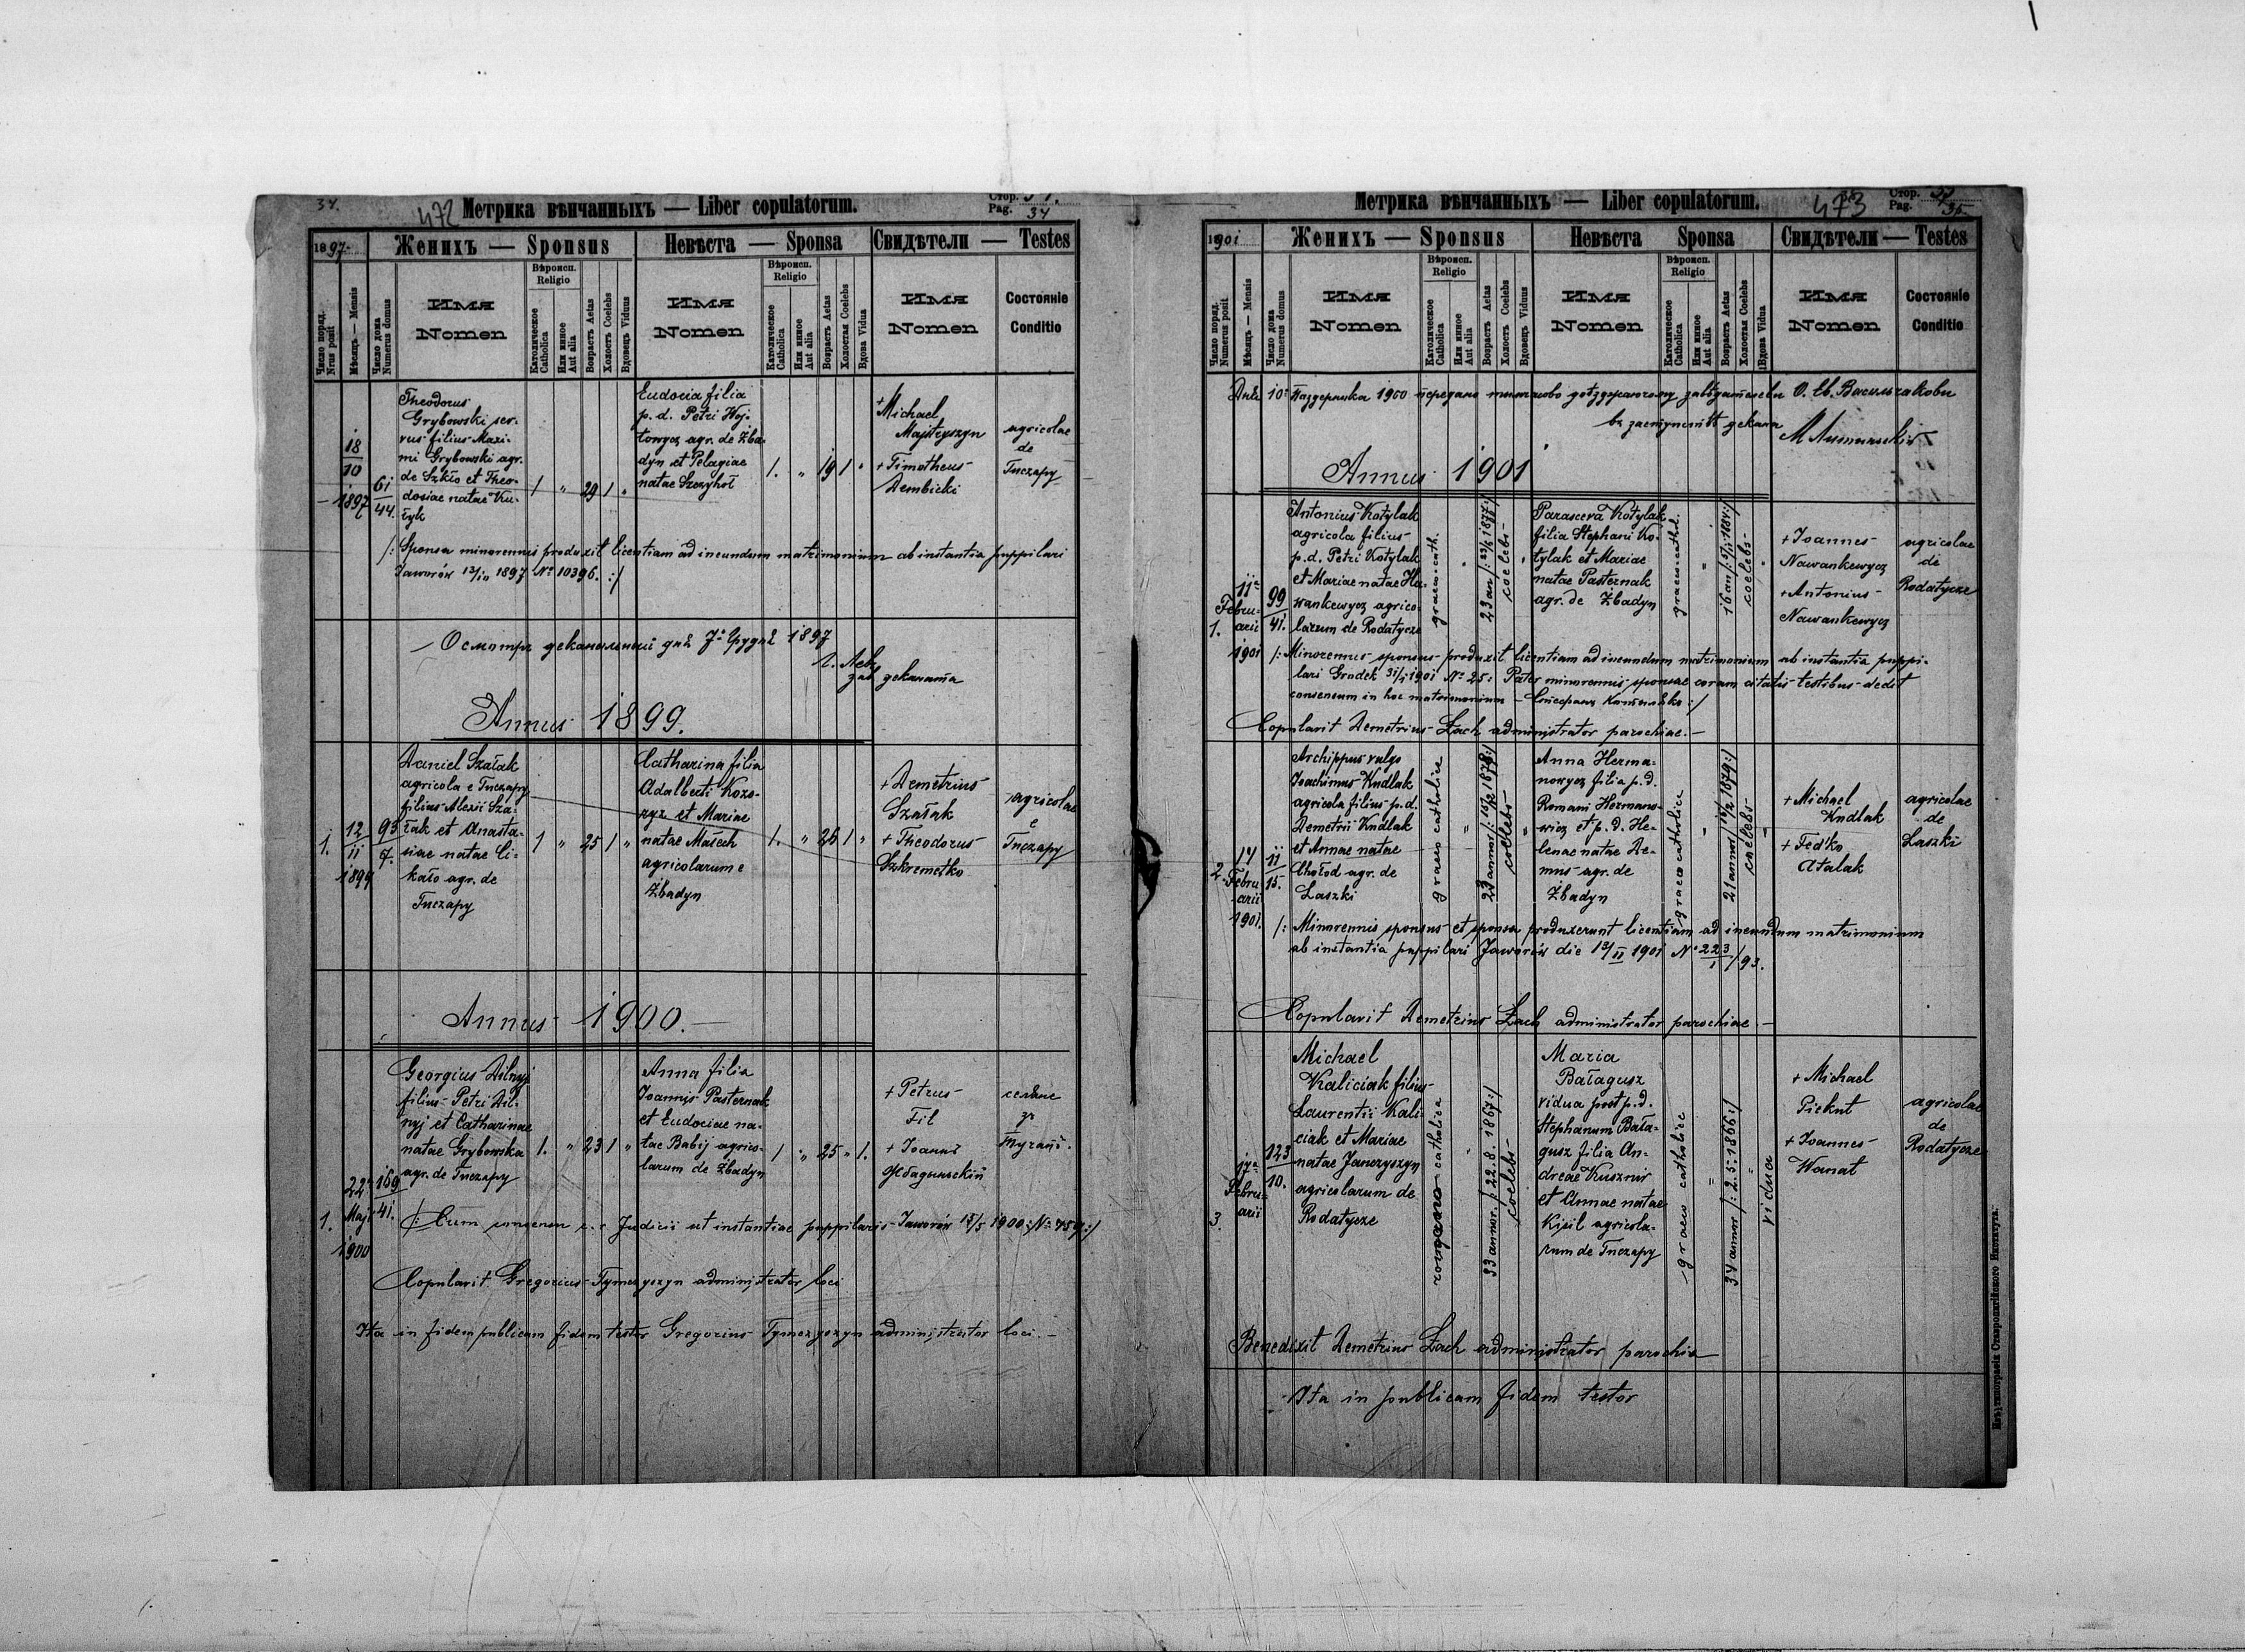 34.
472
Метрика вѣнчанныхъ — Liber copulatorum.
Стор.
Pag. 34
1897.
Женихъ — Sponsus
Невѣста — Sponsa
Свидѣтели — Testes
Число поряд.
Nrus posit
Мѣсяцъ — Mensis
Число дома
Numerus domus
Имя
Nomen
Вѣроисп.
Religio
Католическое
Catholica
Или инное
Aut alia
Возрастъ Aetas
Холостъ Coelebs
Вдовецъ Viduus
Имя
Nomen
Вѣроисп.
Religio
Католическое
Catholica
Или инное
Aut alia
Возрастъ Aetas
Холостая Coelebs
Вдова Vidua
Имя
Nomen
Состояніе
Conditio
18
10
1897
61
44.
Theodorus
Grybowski ser-
vus filius Maxi-
mi Grybowski agr.
de Szkło et Theo-
dosiae natae Ku-
żyk
1 " 29 1 "
Eudocia filia
p. d. Petri Woj-
towycz agr. de Żba-
dyn et Pelagiae
natae Szczyhoł
1. " 19 1 "
+ Michael
Majstryszyn
+ Timotheus
Dembicki
agricolae
de
Tuczapy
/: Sponsa minorennis produxit licentiam ad ineundum matrimonium ab instantia puppilari
Jaworów 13/10 1897 No 10396. :/
Осмотръ деканальный дня 7. Грудня 1897
деканата
Annus 1899.
1.
12
11
1899
93
7.
Daniel Szałak
agricola e Tuczapy
filius Alexii Sza-
łak et Anasta-
siae natae Ci-
kało agr. de
Tuczapy
1 " 25 1 "
Catharina filia
Adalberti Kozo-
ryz et Mariae
natae Małech
agricolarum e
Żbadyn
1. " 26 1 "
+ Demetrius
Szałak
+ Theodorus
Szkremetko
agricolae
e
Tuczapy
Annus 1900.
1.
22
Maji
1900
169
41.
Georgius Dilnyj
filius Petri Dil-
nyj et Catharinae
natae Grybowska
agr. de Tuczapy
1. " 23 1 "
Anna filia
Joannis Pasternak
et Eudociae na-
tae Babij agrico-
larum de Żbadyn
1 " 25 " 1.
+ Petrus
Fil
+ Joannes
/: Cum consensu c. r. Judicii ut instantiae puppilaris Jaworów 17/5 1900
Copulavit Gregorius Tymczyszyn administrator loci
Ita in fidem publicam fidem testor Gregorius Tymczyszyn administrator loci.
Метрика вѣнчанныхъ — Liber copulatorum.
473
Стор.
Pag. 35.
1901
Женихъ — Sponsus
Невѣста Sponsa
Свидѣтели — Testes
Число поряд.
Numerus posit
Мѣсяцъ — Mensis
Число дома
Numerus domus
Имя
Nomen
Вѣроисп.
Religio
Католическое
Catholica
Или инное
Aut alia
Возрастъ Aetas
Холостъ Coelebs
Вдовецъ Viduus
Имя
Nomen
Вѣроисп.
Religio
Католическое
Catholica
Или инное
Aut alia
Возрастъ Aetas
Холостая Coelebs
Вдова Vidua
Имя
Nomen
Состояніе
Conditio
Дня 10 Паздерника 1900 передано
декана
Annus 1901
1.
11
Febru-
arii
1901
99
41.
Antonius Kotylak
agricola filius
p. d. Petri Kotylak
et Mariae natae Na-
wankewycz agrico-
larum de Rodatycze
graeco-cath.
23 an
coelebs
Parasceva Kotylak
filia Stephani Ko-
tylak et Mariae
natae Pasternak
agr. de Żbadyn
graeco-cathol.
16 an
coelebs
+ Joannes
Nawankewycz
+ Antonius
Nawankewycz
agricolae
de
Rodatycze
/: Minorennis sponsus produxit licentiam ad ineundum matrimonium ab instantia puppi-
lari Grodek 31/1 1901 No 25: Pater minorennis sponsae coram citatis testibus dedit
consensum in hoc matrimonium
Copulavit Demetrius Łach administrator parochiae.
2.
14
Febru
arii
1901.
11
15.
Archippus vulgo
Joachimus Kudlak
agricola filius p. d.
Demetrii Kudlak
et Annae natae
Chołod agr. de
Laszki
graeco catholica
23 annor
coelebs
Anna Herma-
nowycz filia p. d.
Romani Hermano-
wicz et p. d. He-
lenae natae De-
mus agr. de
Żbadyn
graeco catholica
21 annor
coelebs
+ Michael
Kudlak
+ Fedko
Atalak
agricolae
de
Laszki
/: Minorennis sponsus et sponsa produxerunt licentiam ad ineundum matrimonium
ab instantia puppilari Jaworów die 13/II 1901 No 223/1 /93.
Copulavit Demetrius Łach administrator parochiae.
3.
17
Febru-
arii
123
10.
Michael
Kaliciak filius
Laurentii Kali-
ciak et Mariae
natae Janczyszyn
agricolarum de
Rodatycze
romano catholica
33 annor. /: 22. 8. 1867:/
coelebs
Maria
Bałagusz
vidua post p. d.
Stephanum Bała-
gusz filia An-
dreae Kusznir
et Annae natae
Kisil agricola-
rum de Tuczapy
graeco catholica
34 annor /: 2. 5. 1866:/
vidua
+ Michael
Piekut
+ Joannes
Wanat
agricolae
de
Rodatycze
Benedixit Demetrius Łach administrator parochiae
Ita in publicam fidem testor
Изъ типографіи Ставропигійского Института.